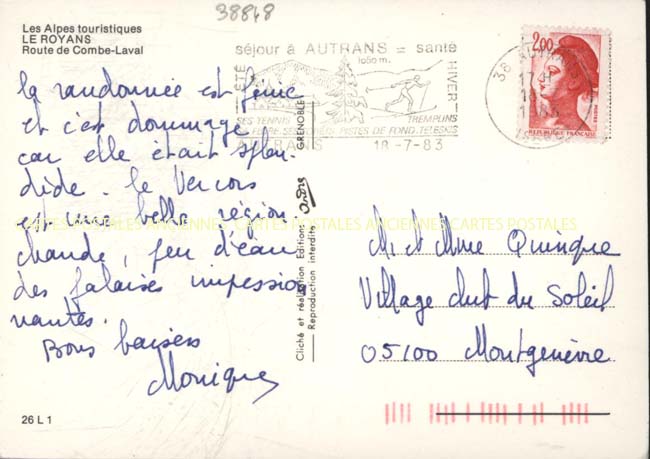 38848
Les Alpes touristiques
LE ROYANS
Route de Combe-Laval
séjour à AUTRANS = santé
1050 m.
ÉTÉ
HIVER
SES TENNIS
TREMPLINS
PISTES DE FOND. TELESKIS
AUTRANS 18-7-83
38 AUTRANS
17 H
18
2,00
REPUBLIQUE FRANÇAISE
la randonnée est finie
et c'est dommage
car elle était splen-
dide. le Vercors
est une belle région.
chaude, peu d'eau
des falaises impression
nantes.
Bons baisers
Monique
CARTES POSTALES ANCIENNES CARTES POSTALES ANCIENNES CARTES POSTALES
GRENOBLE
Cliché et réalisation Editions andré
Reproduction interdite
M. et Mme Quinque
Village club du Soleil
05100 Montgenèvre
26 L 1